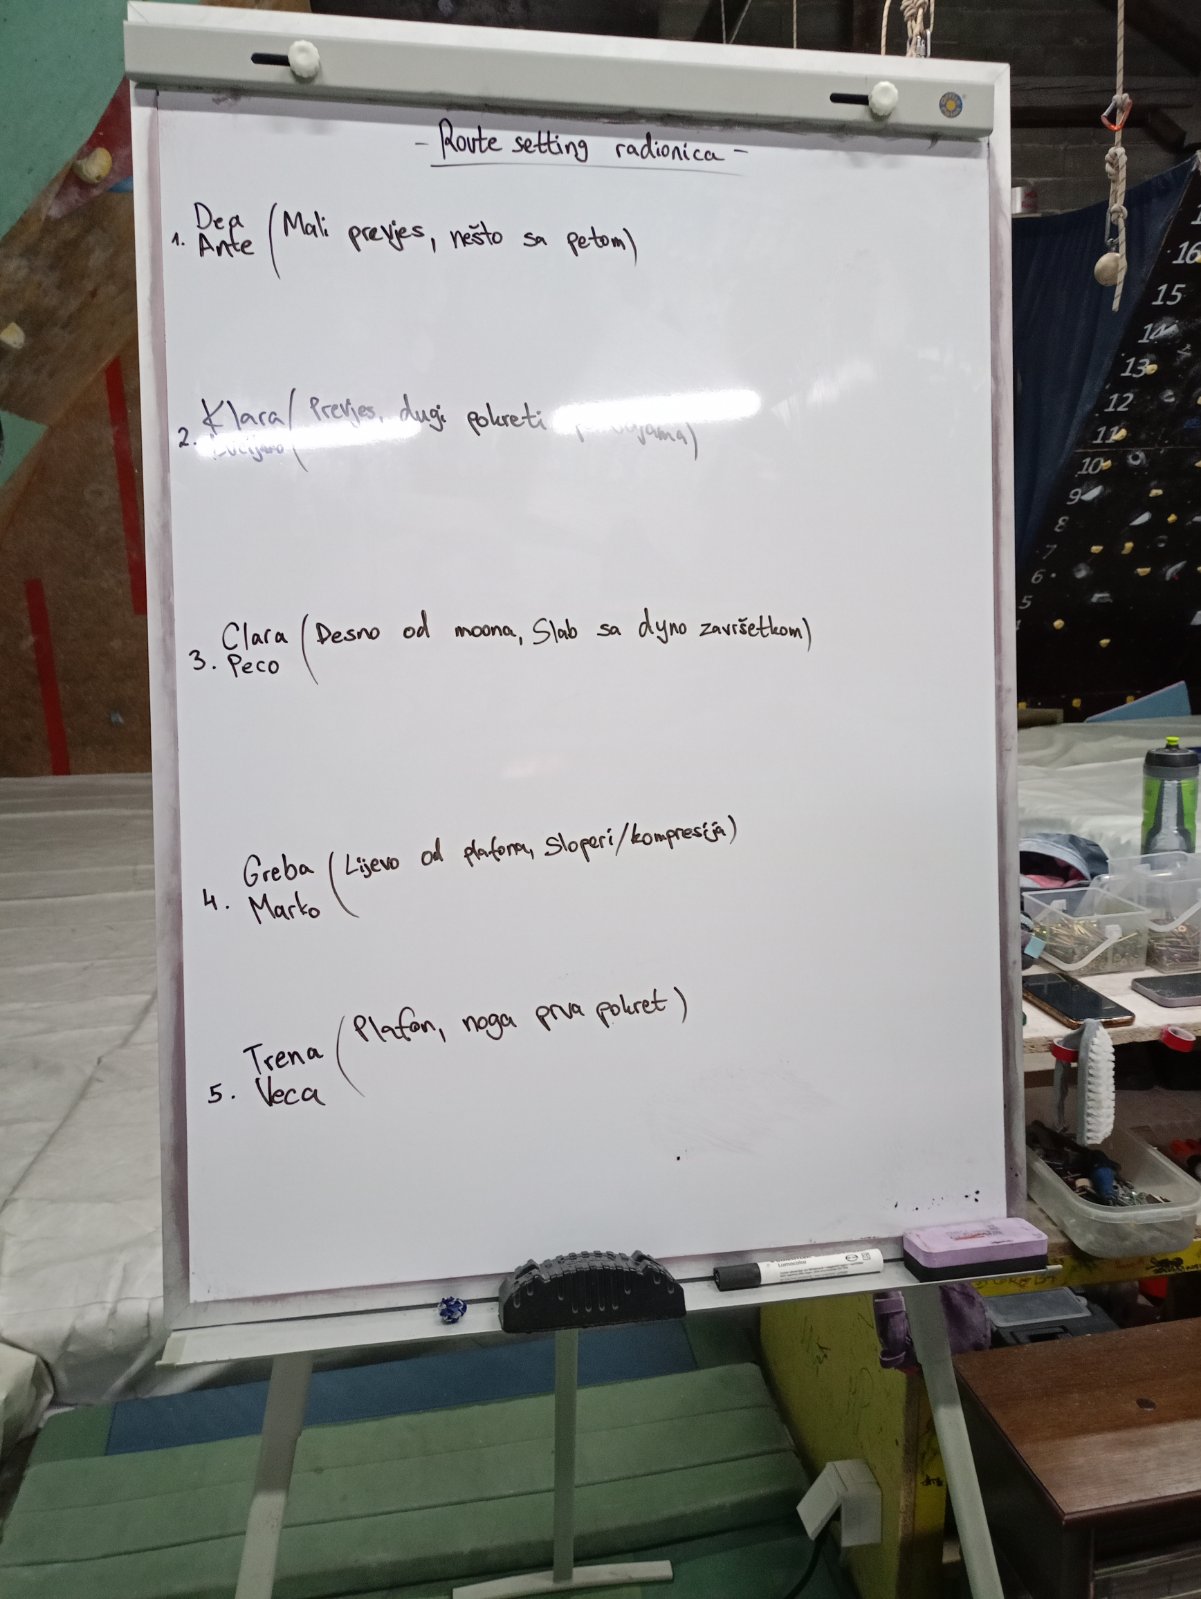 - Route setting radionica -
Dea
1. Ante (Mali prevjes, nešto sa petom)
Klara (Prevjes, dugi pokreti
2.
Clara (Desno od moona, Slab sa dyno završetkom)
3. Peco
Greba (Lijevo od plafona, Sloperi/kompresija)
4. Marko
Trena (Plafon, noga prva pokret)
5. Veca
16
15
14
13
12
11
10
9
8
7
6
5
Lumocolor